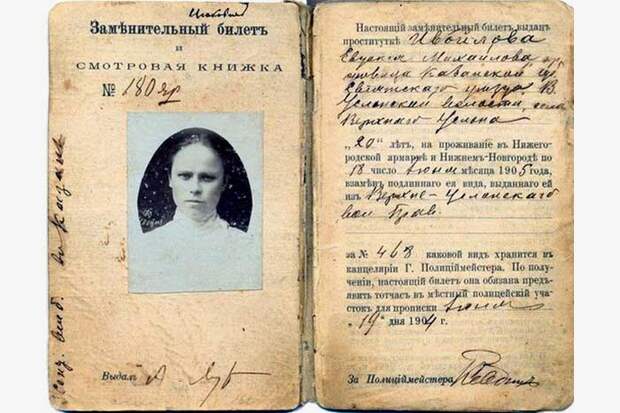 Замѣнительный билетъ
и
СМОТРОВАЯ КНИЖКА
№ 180 яр
Выдалъ
Настоящій замѣнительный билетъ выданъ
проституткѣ Ивойлова
Евдокія Михайлова
Казанской губ.
Свіяжскаго уѣзда В.
Услонской волости, села
Верхняго Услона
„20“ лѣтъ, на проживаніе въ Нижего-
родской ярмаркѣ и Нижнемъ-Новгородѣ по
18 число Іюня мѣсяца 1905 года,
взамѣнъ подлиннаго ея вида, выданнаго ей
изъ Верхне-Услонскаго
вол. Прав.
за № 468 каковой видъ хранится въ
канцеляріи Г. Полиціймейстера. По полу-
ченіи, настоящій билетъ она обязана предъ-
явить тотчасъ въ мѣстный полицейскій уча-
стокъ для прописки Іюня
„19“ дня 1904 г.
За Полиціймейстера